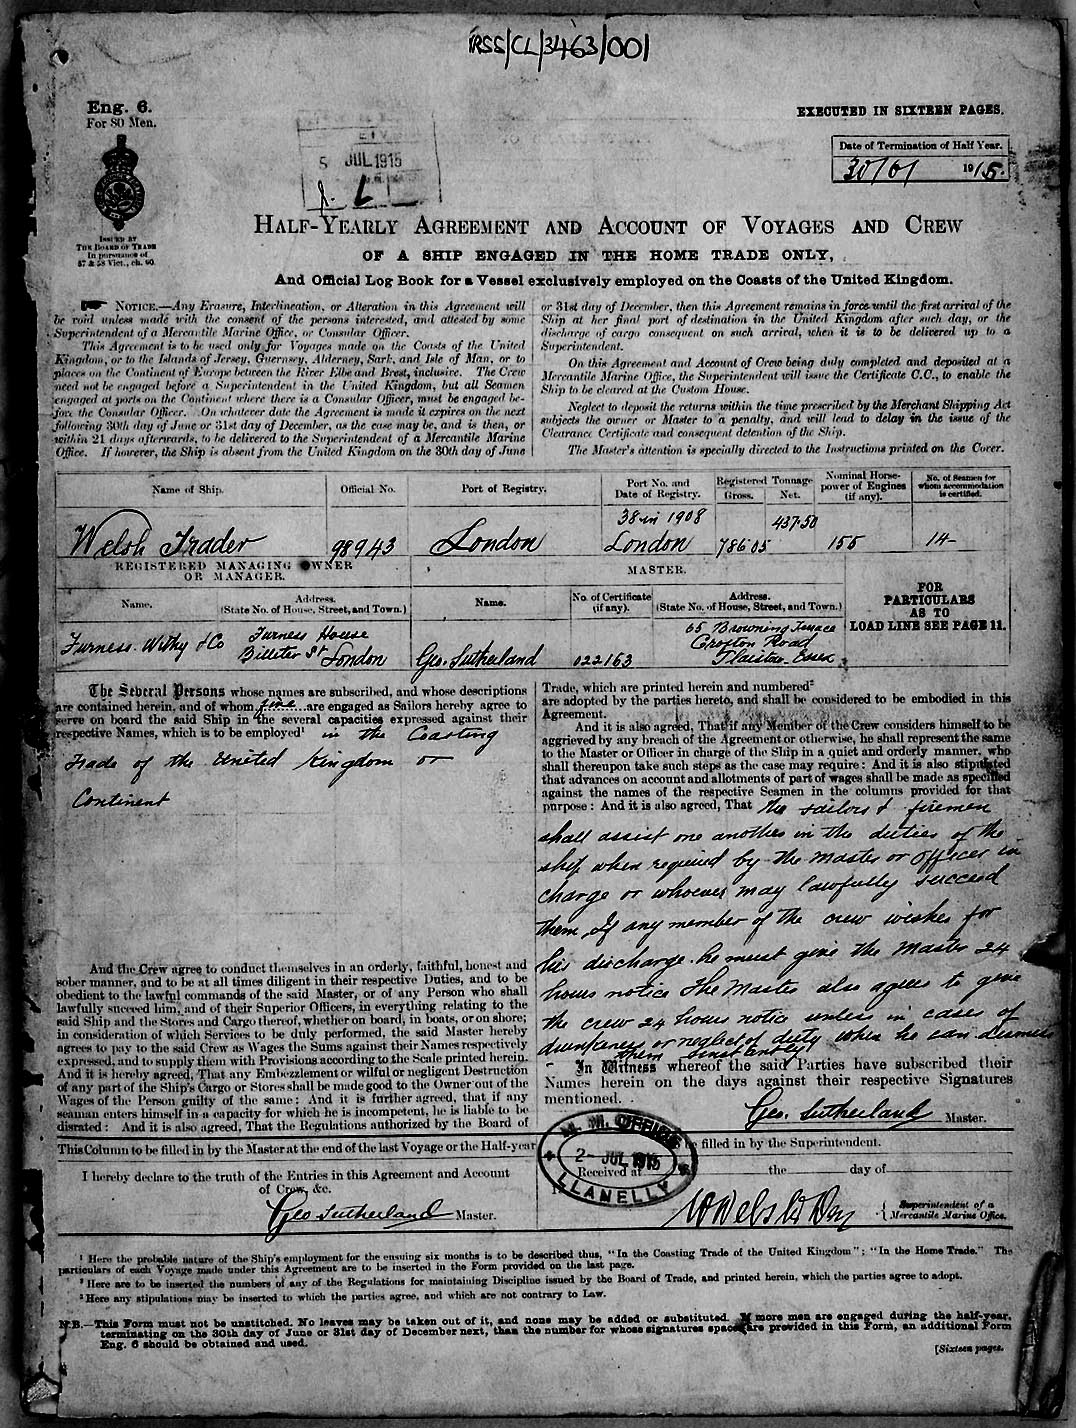 RSS/CL/3463/001
Eng. 6.
For 80 Men.
EXECUTED IN SIXTEEN PAGES.
5 JUL 1915
Date of Termination of Half Year.
1915.
ISSUED BY
THE BOARD OF TRADE
In pursuance of
57 & 58 Vict., ch. 60.
HALF-YEARLY AGREEMENT AND ACCOUNT OF VOYAGES AND CREW
OF A SHIP ENGAGED IN THE HOME TRADE ONLY,
And Official Log Book for a Vessel exclusively employed on the Coasts of the United Kingdom.
NOTICE.—Any Erasure, Interlineation, or Alteration in this Agreement will
be void unless made with the consent of the persons interested, and attested by some
Superintendent of a Mercantile Marine Office, or Consular Officer.
This Agreement is to be used only for Voyages made on the Coasts of the United
Kingdom, or to the Islands of Jersey, Guernsey, Alderney, Sark, and Isle of Man, or to
places on the Continent of Europe between the River Elbe and Brest, inclusive. The Crew
need not be engaged before a Superintendent in the United Kingdom, but all Seamen
engaged at ports on the Continent where there is a Consular Officer, must be engaged be-
fore the Consular Officer. On whatever date the Agreement is made it expires on the next
following 30th day of June or 31st day of December, as the case may be, and is then, or
within 21 days afterwards, to be delivered to the Superintendent of a Mercantile Marine
Office. If however, the Ship is absent from the United Kingdom on the 30th day of June
or 31st day of December, then this Agreement remains in force until the first arrival of the
Ship at her final port of destination in the United Kingdom after such day, or the
discharge of cargo consequent on such arrival, when it is to be delivered up to a
Superintendent.
On this Agreement and Account of Crew being duly completed and deposited at a
Mercantile Marine Office, the Superintendent will issue the Certificate C.C., to enable the
Ship to be cleared at the Custom House.
Neglect to deposit the returns within the time prescribed by the Merchant Shipping Act
subjects the owner or Master to a penalty, and will lead to delay in the issue of the
Clearance Certificate and consequent detention of the Ship.
The Master's attention is specially directed to the Instructions printed on the Cover.
Name of Ship. Official No. Port of Registry. Port No. and Date of Registry. Registered Tonnage Gross. Net. Nominal Horse-power of Engines (if any). No. of Seamen for whom accommodation is certified.
Welsh Trader 98943 London 38 in 1908 London 786.05 437.50 155 14
REGISTERED MANAGING OWNER
OR MANAGER.
MASTER.
Name. Address. (State No. of House, Street, and Town.) Name. No. of Certificate (if any). Address. (State No. of House, Street, and Town.)
FOR
PARTICULARS
AS TO
LOAD LINE SEE PAGE 11.
Furness Withy & Co Furness House Billiter St London Geo. Sutherland 022163 65 Browning Terrace Croston Road Plaistow Essex
The Several Persons whose names are subscribed, and whose descriptions
are contained herein, and of whom five are engaged as Sailors hereby agree to
serve on board the said Ship in the several capacities expressed against their
respective Names, which is to be employed¹ in the Coasting
Trade of the United Kingdom or
Continent
And the Crew agree to conduct themselves in an orderly, faithful, honest and
sober manner, and to be at all times diligent in their respective Duties, and to be
obedient to the lawful commands of the said Master, or of any Person who shall
lawfully succeed him, and of their Superior Officers, in everything relating to the
said Ship and the Stores and Cargo thereof, whether on board, in boats, or on shore;
in consideration of which Services to be duly performed, the said Master hereby
agrees to pay to the said Crew as Wages the Sums against their Names respectively
expressed, and to supply them with Provisions according to the Scale printed herein.
And it is hereby agreed, That any Embezzlement or wilful or negligent Destruction
of any part of the Ship's Cargo or Stores shall be made good to the Owner out of the
Wages of the Person guilty of the same: And it is further agreed, that if any
seaman enters himself in a capacity for which he is incompetent, he is liable to be
disrated: And it is also agreed, That the Regulations authorized by the Board of
Trade, which are printed herein and numbered²
are adopted by the parties hereto, and shall be considered to be embodied in this
Agreement.
And it is also agreed, That if any Member of the Crew considers himself to be
aggrieved by any breach of the Agreement or otherwise, he shall represent the same
to the Master or Officer in charge of the Ship in a quiet and orderly manner, who
shall thereupon take such steps as the case may require: And it is also stipulated
that advances on account and allotments of part of wages shall be made as specified
against the names of the respective Seamen in the columns provided for that
purpose: And it is also agreed, That the sailors & firemen
shall assist one another in the duties of the
ship when required by the master or officer in
charge or whoever may lawfully succeed
them. If any member of the crew wishes for
his discharge he must give the Master 24
hours notice The Master also agrees to give
the crew 24 hours notice unless in cases of
drunkeness or neglect of duty when he can dismiss
them instantly
In Witness whereof the said Parties have subscribed their
Names herein on the days against their respective Signatures
mentioned.
Geo. Sutherland Master.
This Column to be filled in by the Master at the end of the last Voyage or the Half-year
I hereby declare to the truth of the Entries in this Agreement and Account
of Crew, &c.
Geo Sutherland Master.
be filled in by the Superintendent.
M. M. OFFICE
2- JUL 1915
LLANELLY
Received at the day of
Superintendent of a
Mercantile Marine Office.
¹ Here the probable nature of the Ship's employment for the ensuing six months is to be described thus, "In the Coasting Trade of the United Kingdom"; "In the Home Trade." The
particulars of each Voyage made under this Agreement are to be inserted in the Form provided on the last page.
² Here are to be inserted the numbers of any of the Regulations for maintaining Discipline issued by the Board of Trade, and printed herein, which the parties agree to adopt.
³ Here any stipulations may be inserted to which the parties agree, and which are not contrary to Law.
N.B.—This Form must not be unstitched. No leaves may be taken out of it, and none may be added or substituted. If more men are engaged during the half-year,
terminating on the 30th day of June or 31st day of December next, than the number for whose signatures spaces are provided in this Form, an additional Form
Eng. 6 should be obtained and used.
[Sixteen pages.